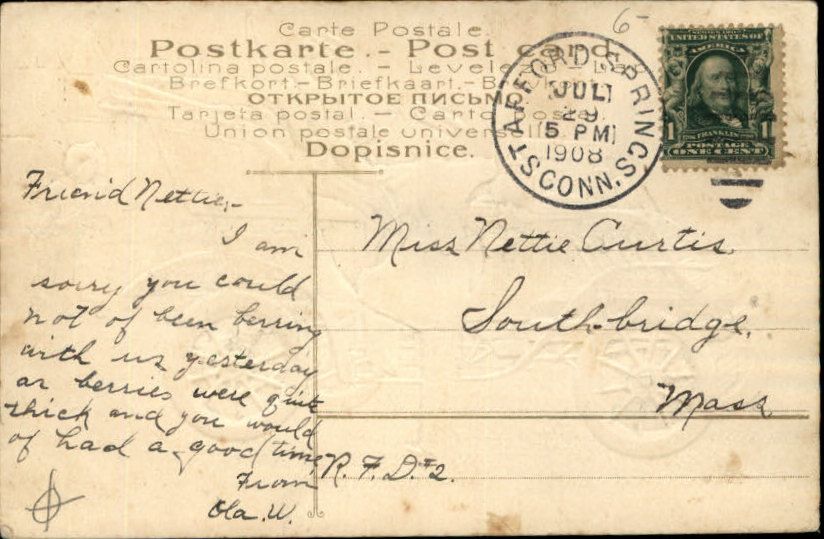 6-
Carte Postale.
Postkarte.- Post card.
Cartolina postale. - Levele
Brefkort.-Briefkaart.-B
ОТКРЫТОЕ ПИСЬМ
Tarjeta postal. - Carto postal.
Union postale universelle
Dopisnice.
STAFFORD SPRINGS
JUL
29
5 PM
1908
CONN.
SERIES 1902
UNITED STATES OF
AMERICA
1 FRANKLIN 1
POSTAGE
ONE CENT
Friend Nettie,-
I am
sorry you could
not of been berring
with us yesterday
as berries were quit
thick and you would
of had a good time
From
Ola. W.
Miss Nettie Curtis
Southbridge.
Mass
R. F. D. #2.